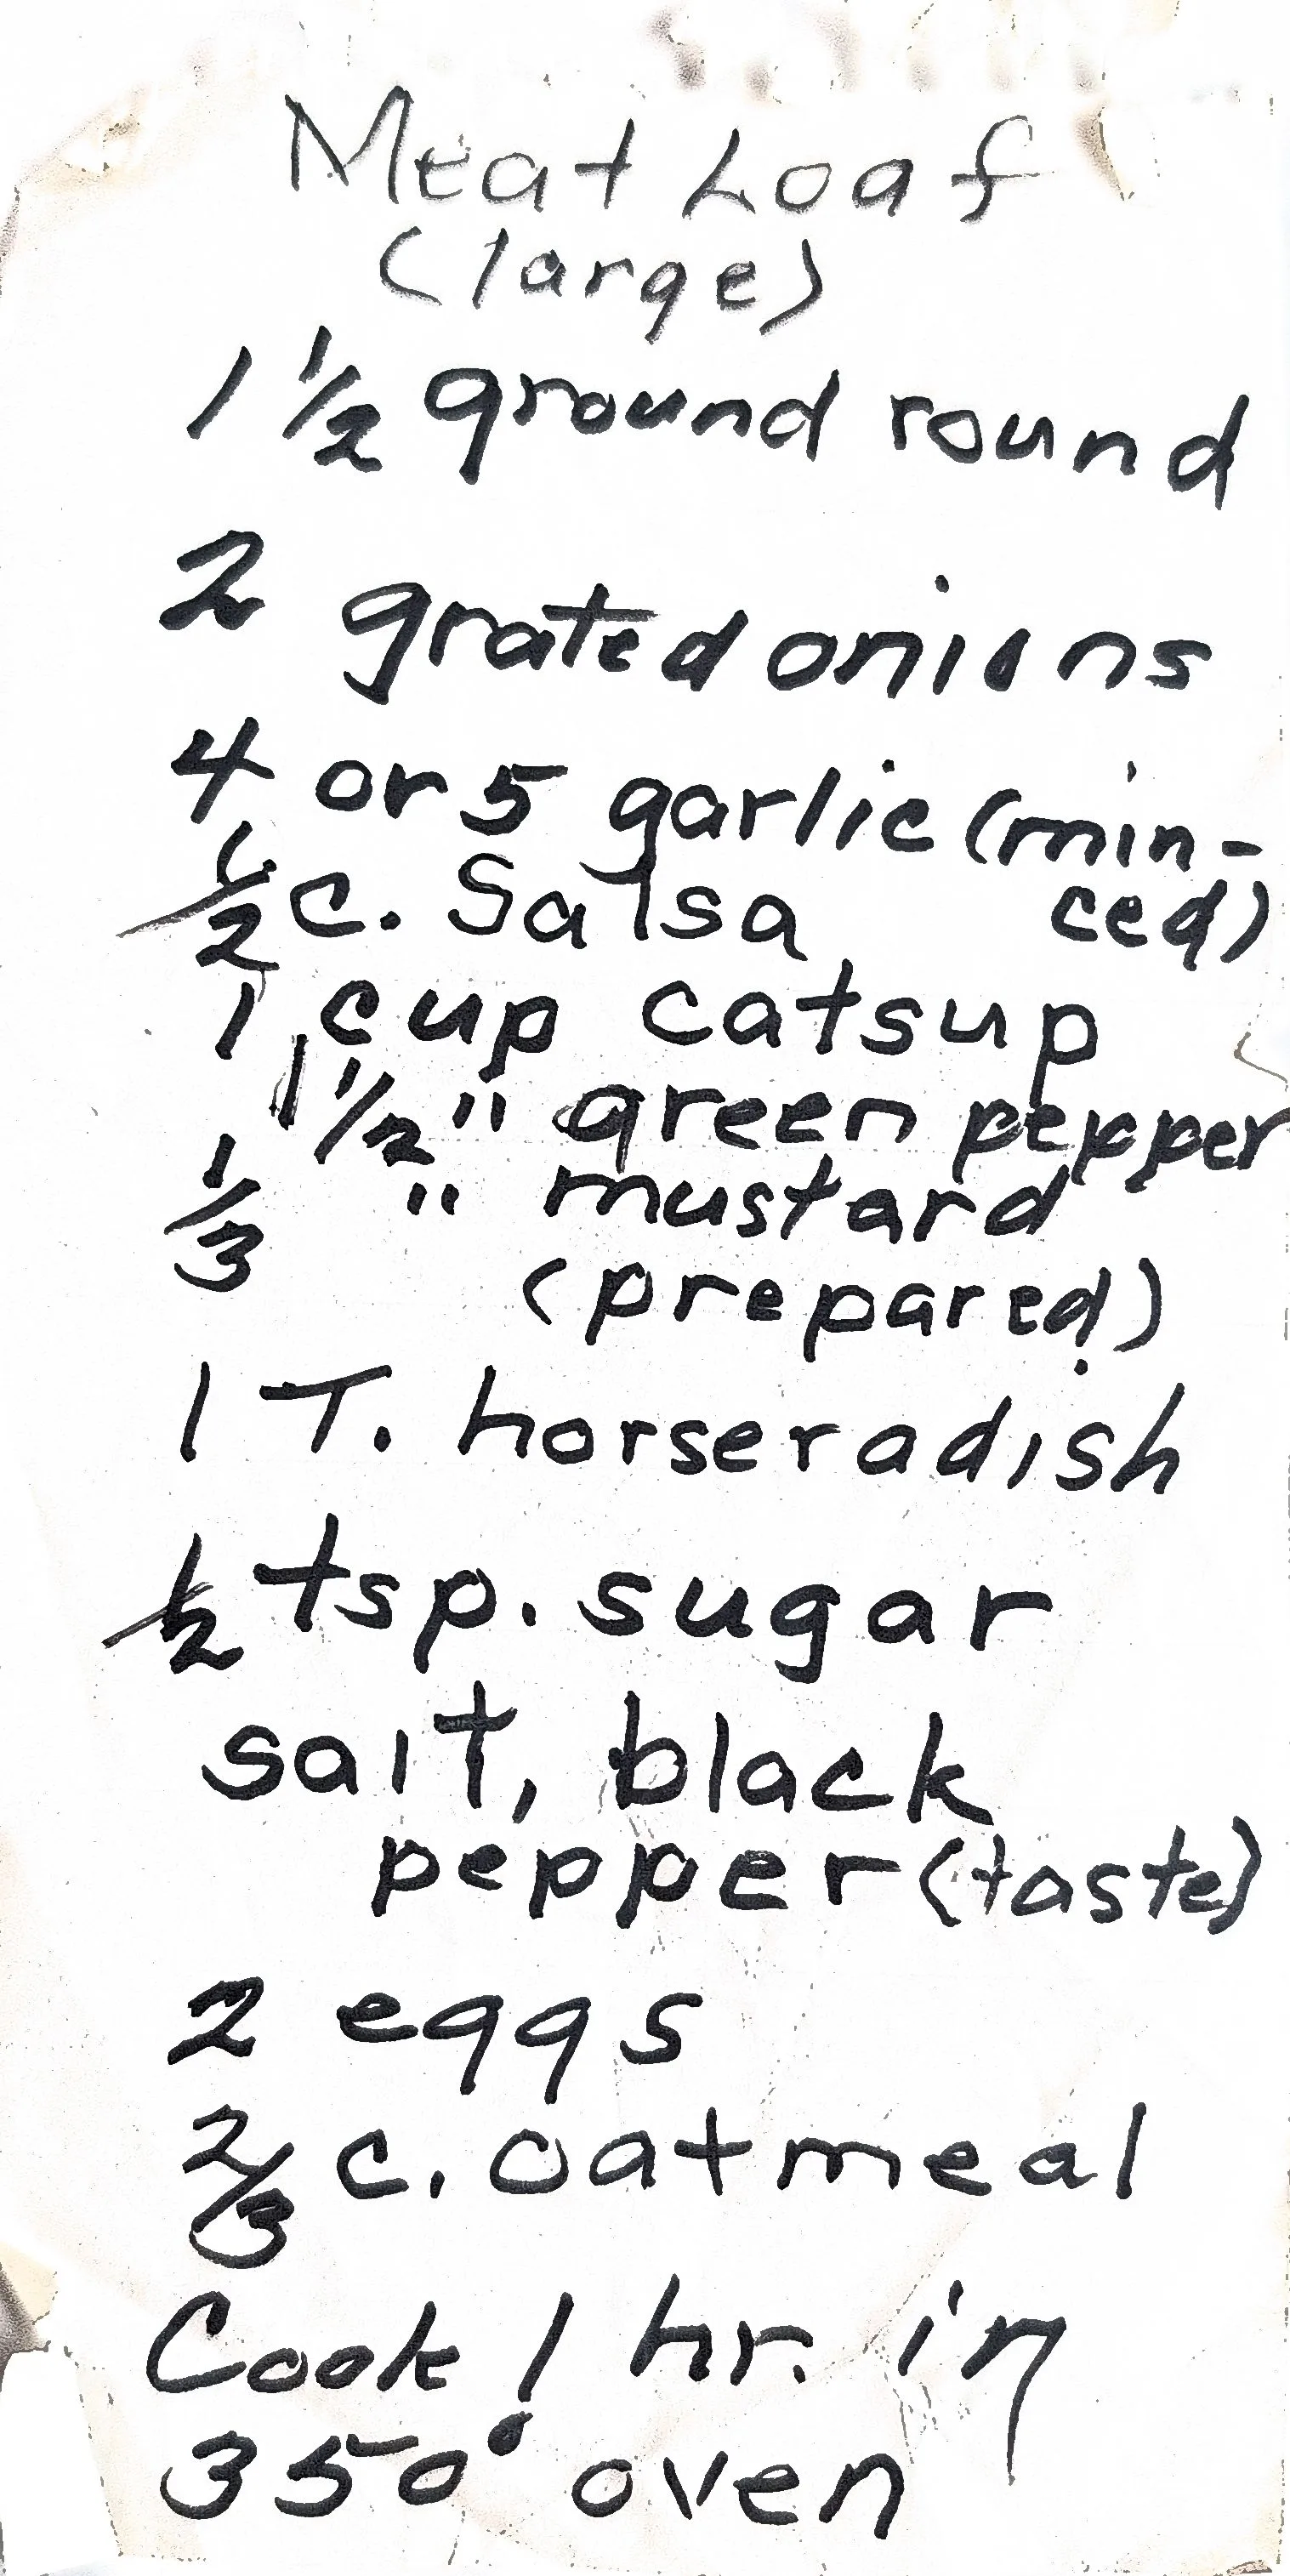 Meat Loaf
(large)
1 1/2 ground round
2 grated onions
4 or 5 garlic (min-
ced)
1/2 c. Salsa
1 cup catsup
1 1/2 " green pepper
1/3 " mustard
(prepared)
1 T. horseradish
1/2 tsp. sugar
salt, black
pepper (taste)
2 eggs
2/3 c. oatmeal
Cook 1 hr. in
350° oven